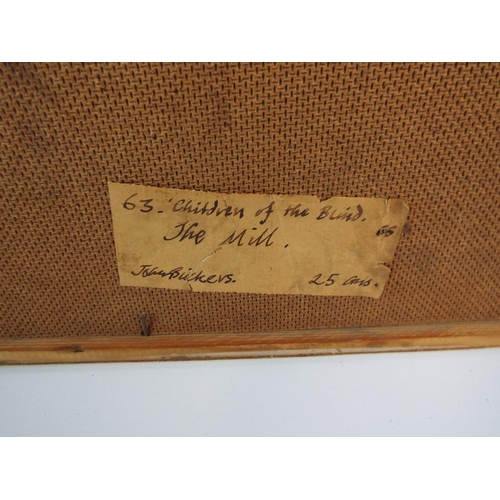 63. Children of the Blind.
The Mill.
John Bickers. 25 gns.